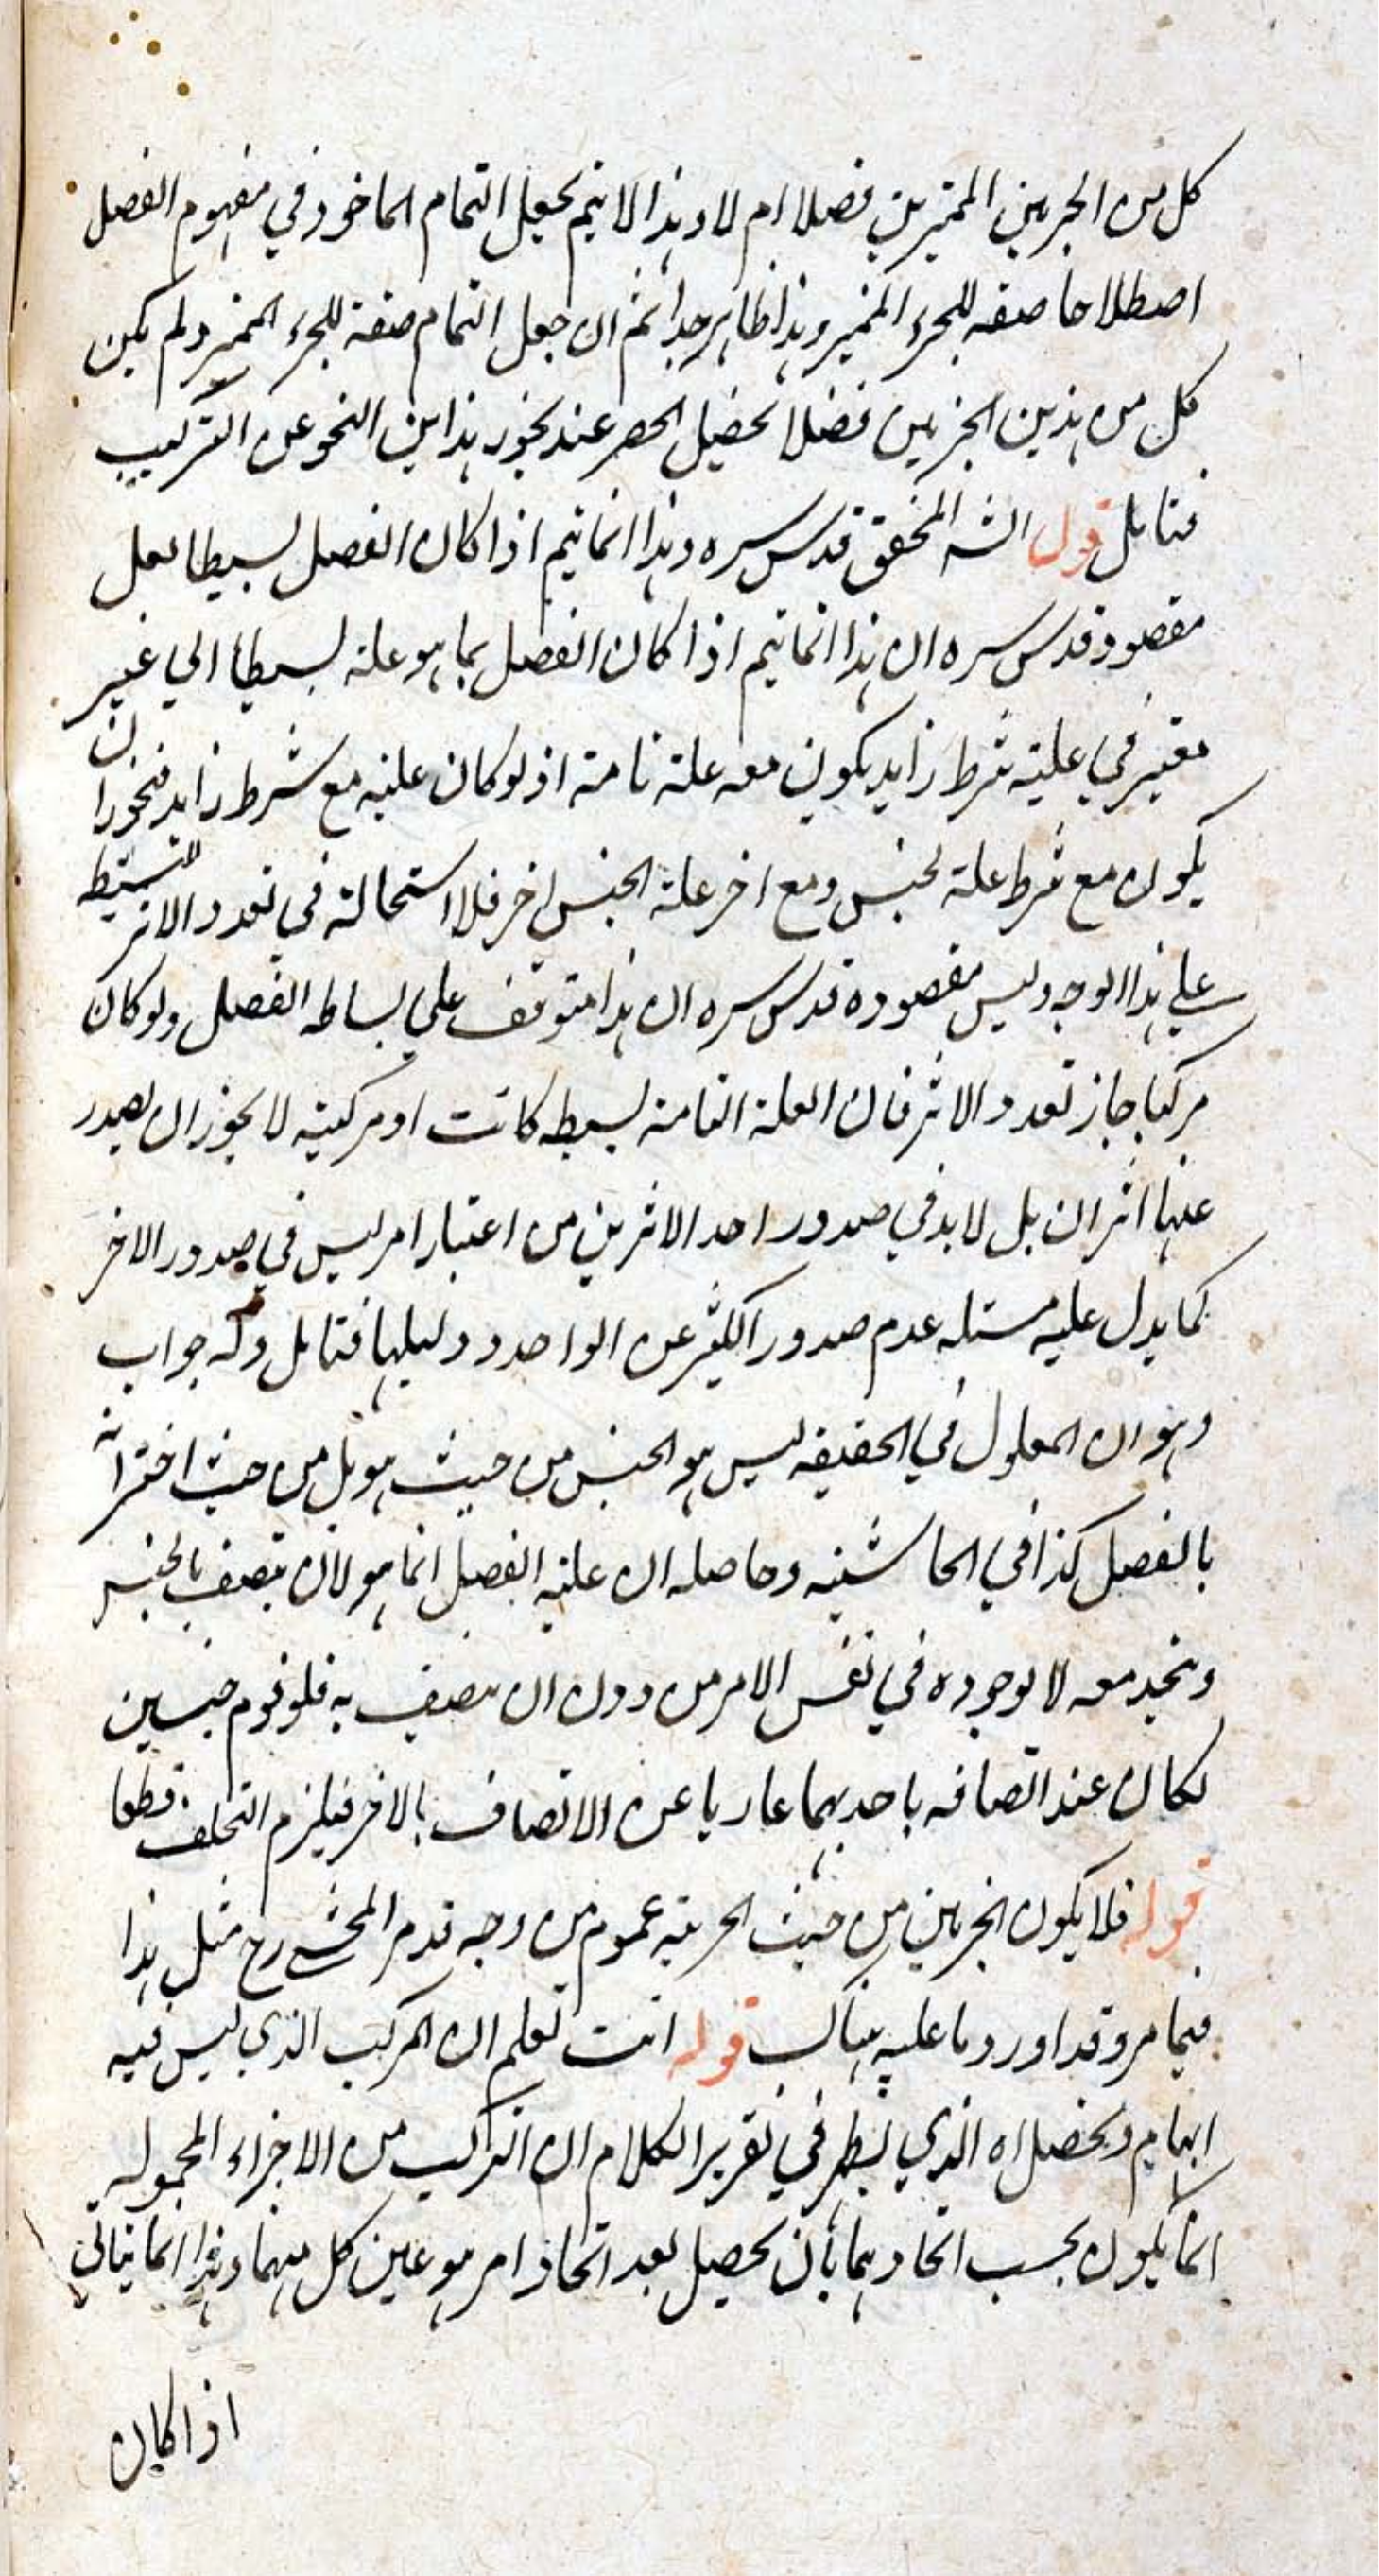 كل من الجزئين المميزين فصلا ام لا وهذا لا يتم بجعل التمام الماخوذ في مفهوم الفصل
اصطلاحا صفة للجزء المميز وهذا ظاهر جدا ثم ان جعل التمام صفة للجزء المميز ولم يكن
كل من هذين الجزئين فصلا يحصل الحصر عند تجويز هذا النحو عن التركيب
فتامل قول الشه المحقق قدس سره وهذا انما يتم اذا كان الفصل بسيطا لعل
مقصود قدس سره ان هذا انما يتم اذا كان الفصل بما هو علة بسيطا الي غير
معتبر في علية شرط زايد يكون معه علة تامة اذ لو كان علية مع شرط زايد فيجوز ان
يكون مع شرط علة لجنس ومع اخر علة لجنس اخر فلا استحالة في تعدد الاثر للبسيط
علي هذا الوجه وليس مقصوده قدس سره ان هذا متوقف علي بساطه الفصل ولو كان
مركبا جاز تعدد الاثر فان العلة التامة بسيطه كانت او مركبة لا يجوز ان يصدر
عنها اثران بل لا بد في صدور احد الاثرين من اعتبار امر ليس في صدور الاخر
كما يدل عليه مسئله عدم صدور الكثير عن الواحد ودليلها فتامل وله جواب
وهو ان المعلول في الحقيقه ليس هو الجنس من حيث هو بل من حيث اقترانه
بالفصل كذا في الحاشيه وحاصله ان علية الفصل انما هو لان يتصف بالجنس
ويتحد معه لا لوجوده في نفس الامر من دون ان يتصف به فلو قوم جنسين
لكان عند اتصافه باحدهما عاريا عن الاتصاف بالاخر فيلزم التخلف قطعا
قوله فلا يكون الجزئين من حيث الجزئية عموم من وجه قدم المحشي رح مثل هذا
فيما مر وقد اورد ما عليه هناك قوله انت تعلم ان المركب الذي ليس فيه
ابهام ويحصل اه الذي يظهر في تقرير الكلام ان التركيب من الاجزاء المحمولة
انما يكون بحسب اتحادهما بان يحصل بعد اتحاد امر هو عين كل منهما وهذا انما يتاتي
اذا كان